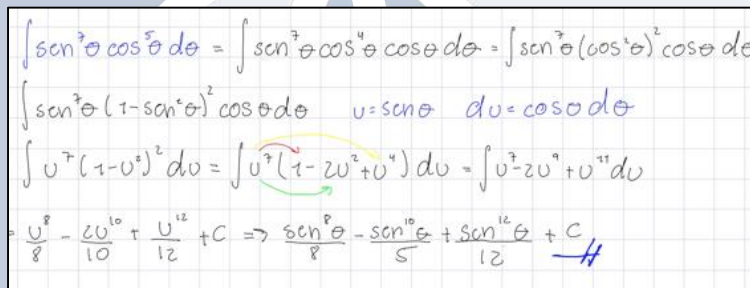 ∫sen⁷θ cos⁵θ dθ = ∫ sen⁷θ cos⁴θ cosθ dθ = ∫sen⁷θ (cos²θ)² cosθ dθ
∫sen⁷θ (1-sen²θ)² cosθ dθ u=senθ du=cosθ dθ
∫ u⁷(1-u²)² du = ∫u⁷(1-2u²+u⁴) du = ∫u⁷-2u⁹+u¹¹ du
= u⁸/8 - 2u¹⁰/10 + u¹²/12 + C => sen⁸θ/8 - sen¹⁰θ/5 + sen¹²θ/12 + C